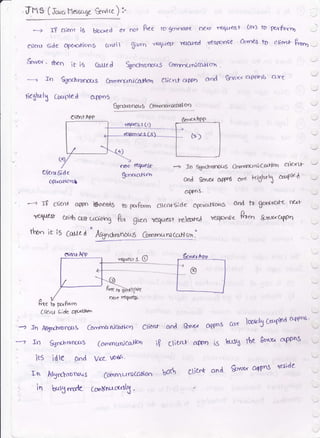 JMS (Java Message Service) :-
→ If client is blocked or not free to generate new request (or) to perform
client side operations until given request related response comes to client from
Server, then it is called Synchronous Communication.
→ In Synchronous Communication client appn and Server appns are
tightly coupled appns.
Synchronous Communication
client App
Server App
request 1 (1)
response 1 (3)
(2)
(4)
new request
Generation
client side
operations
→ In Synchronous Communication client
and Server appns are tightly coupled
appns.
→ If client appn to perform client side operations and to generate next
request without waiting for given request related response from Server appn
then it is called "Asynchronous Communication."
client App
Server App
request 1
free to generate
new request
free to perform
client side operation
→ In Asynchronous Communication client and Server appns are loosely coupled appns.
→ In Synchronous Communication if client appn is busy the Server appns
its idle and vice versa.
In Asynchronous Communication both client and Server appns reside
in busy mode continuously.